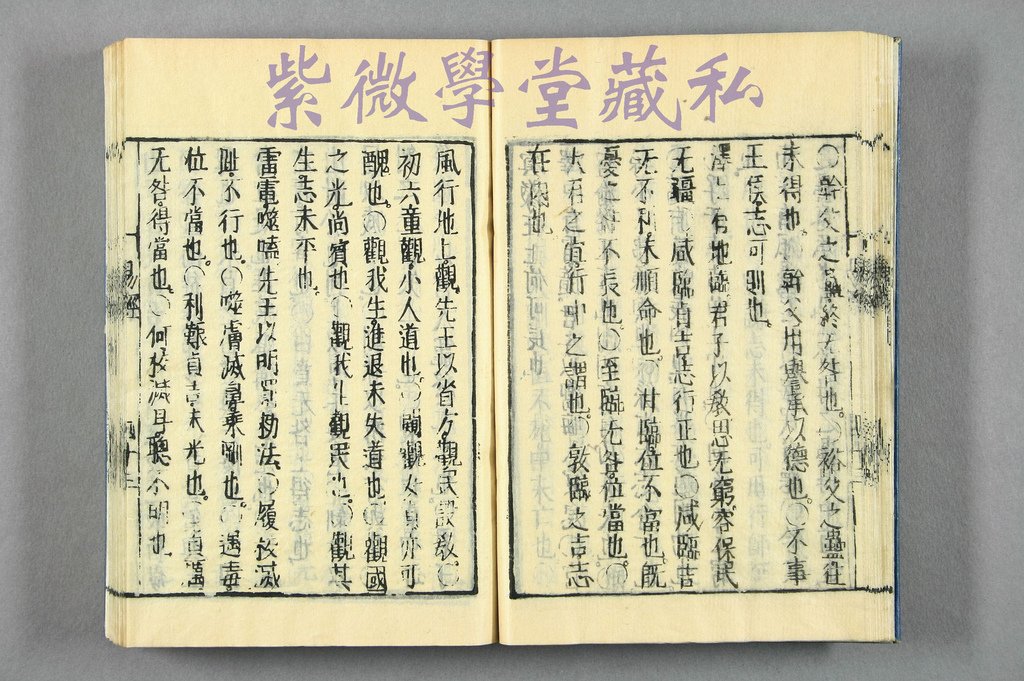 紫微學堂藏私
〇幹父之蠱終无咎也。〇裕父之蠱往
未得也。〇幹父用譽承以德也。〇不事
王侯志可則也。
澤上有地臨君子以教思无窮容保民
无疆。〇咸臨貞吉志行正也。〇咸臨吉
无不利未順命也。〇甘臨位不當也。既
憂之咎不長也。〇至臨无咎位當也。〇
大君之宜行中之謂也。〇敦臨之吉志
在內也。
風行地上觀先王以省方觀民設教〇
初六童觀小人道也。〇闚觀女貞亦可
醜也。〇觀我生進退未失道也。〇觀國
之光尚賓也。〇觀我生觀民也。〇觀其
生志未平也。
雷電噬嗑先王以明罰勑法。〇履校滅
趾不行也。〇噬膚滅鼻乘剛也。〇遇毒
位不當也。〇利艱貞吉未光也。〇貞厲
无咎得當也。〇何校滅耳聰不明也。
易經